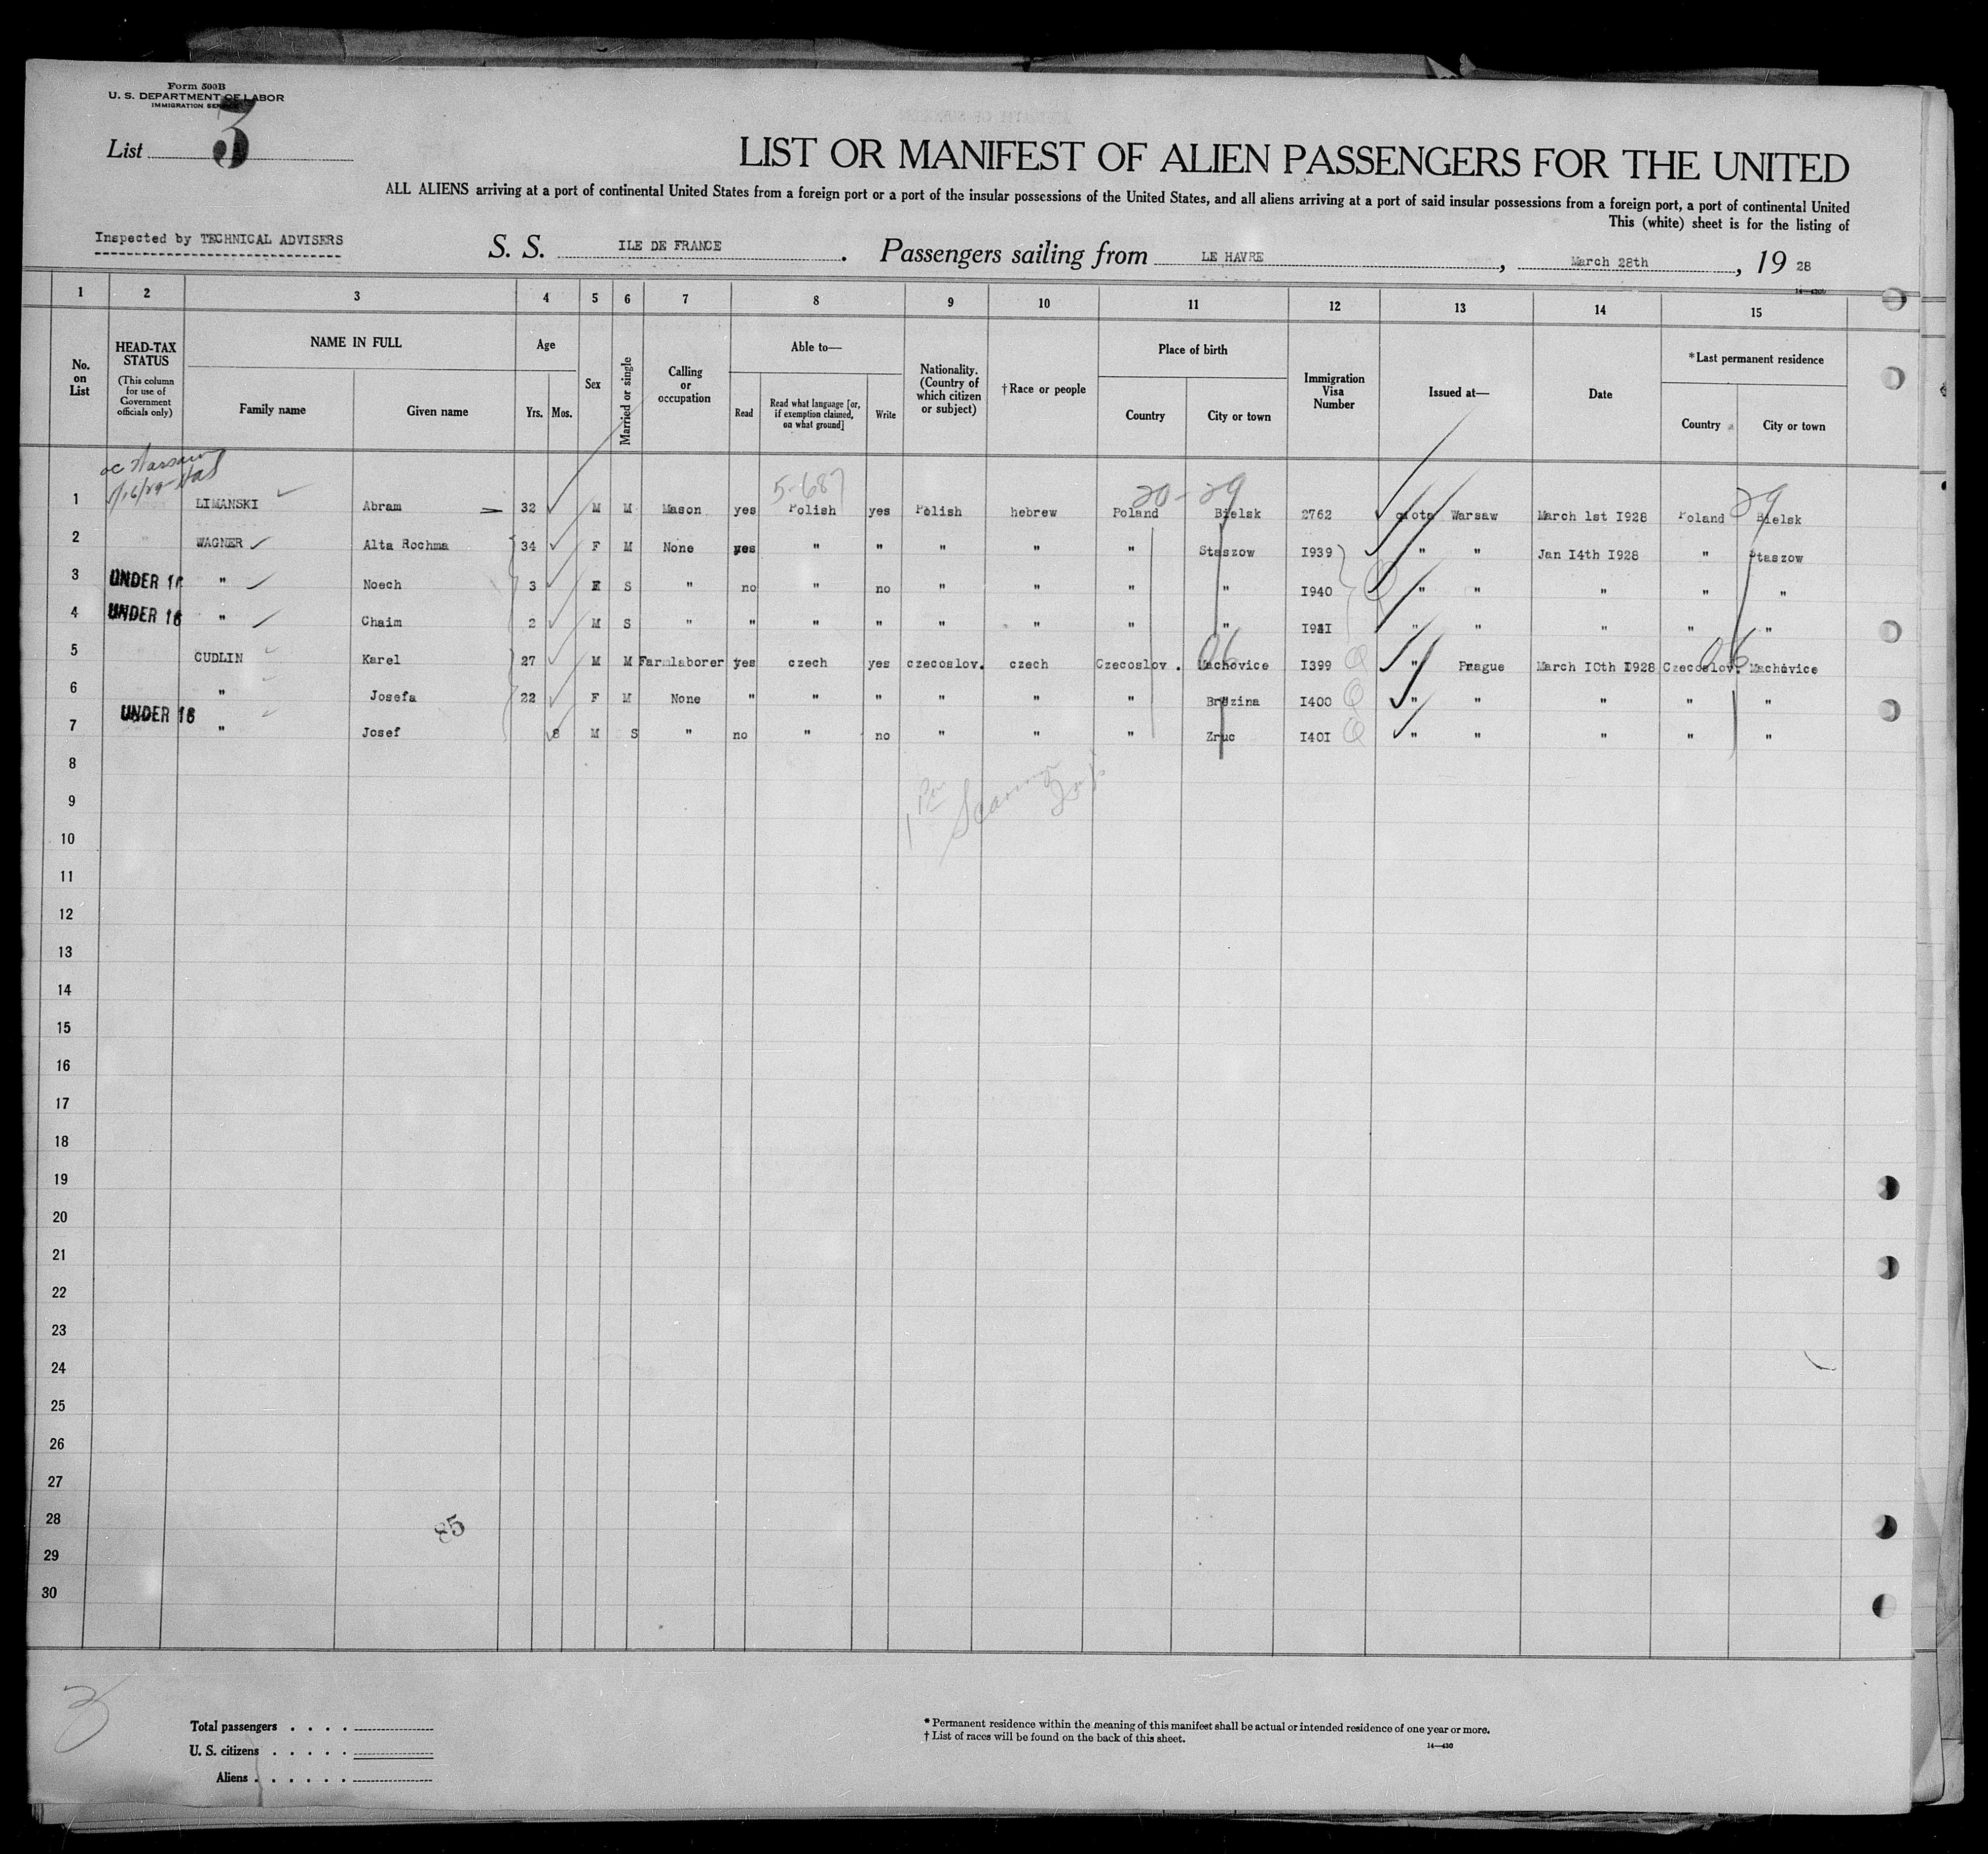 Form 500B
U. S. DEPARTMENT OF LABOR
IMMIGRATION SERVICE
List 3
LIST OR MANIFEST OF ALIEN PASSENGERS FOR THE UNITED
ALL ALIENS arriving at a port of continental United States from a foreign port or a port of the insular possessions of the United States, and all aliens arriving at a port of said insular possessions from a foreign port, a port of continental United
This (white) sheet is for the listing of
Inspected by TECHNICAL ADVISERS
S. S. ILE DE FRANCE. Passengers sailing from LE HAVRE, March 28th, 19 28
1 2 3 4 5 6 7 8 9 10 11 12 13 14 15
No. on List
HEAD-TAX STATUS (This column for use of Government officials only)
NAME IN FULL
Family name Given name
Age
Yrs. Mos.
Sex
Married or single
Calling or occupation
Able to—
Read
Read what language [or, if exemption claimed, on what ground]
Write
Nationality. (Country of which citizen or subject)
†Race or people
Place of birth
Country City or town
Immigration Visa Number
Issued at—
Date
*Last permanent residence
Country City or town
5-687 20-29 29
1 LIMANSKI Abram 32 M M Mason yes Polish yes Polish hebrew Poland Bielsk 2762 quota Warsaw March 1st I928 Poland Bielsk
2 WAGNER Alta Rochma 34 F M None yes " " " " " Staszow I939 " " Jan I4th I928 " Staszow
3 UNDER 16 " Noech 3 S " no " no " " " " I940 " " " " "
4 UNDER 16 " Chaim 2 M S " " " " " " " " I941 " " " " "
06 06
5 CUDLIN Karel 27 M M Farmlaborer yes czech yes czecoslov. czech Czecoslov. Machovice I399 " Prague March IOth I928 Czecoslov. Machovice
6 " Josefa 22 F M None " " " " " " Brezina I400 " " " " "
7 UNDER 16 " Josef 8 M S " no " no " " " Zruc I40I " " " " "
8
9
10
11
12
13
14
15
16
17
18
19
20
21
22
23
24
25
26
27
28
29
30
85
3
Total passengers . . . .
U. S. citizens . . . . .
Aliens . . . . . .
* Permanent residence within the meaning of this manifest shall be actual or intended residence of one year or more.
† List of races will be found on the back of this sheet.
14—430